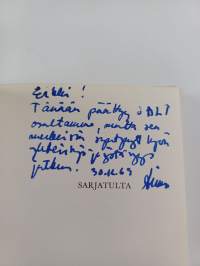 Erkki!
Tänään päättyy
osaltamme, mutta sen
merkeissä syntynyt hyvä
yhteistyö ja ystävyys
jatkuu. 30.11.69
SARJATULTA